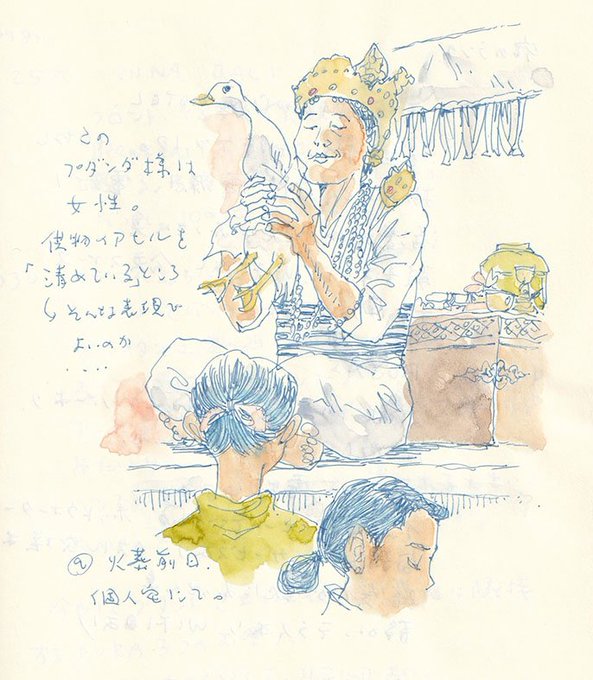 この
プダンダ様は
女性。
供物のアヒルを
「清めている」ところ
↳そんな表現で
よいのか
‥‥
⑨ 火葬前日.
個人宅にて。